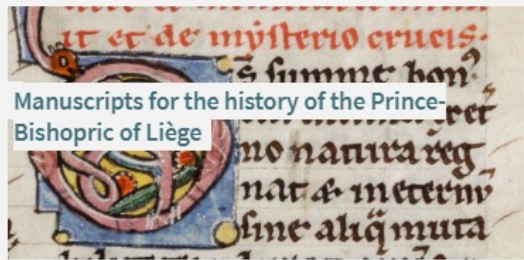 it et de mẏsterio crucis·
S̄ summe bon⁹
Manuscripts for the history of the Prince-
Bishopric of Liège
no natura reg
nat & in etern̄
sine aliq̄ muta